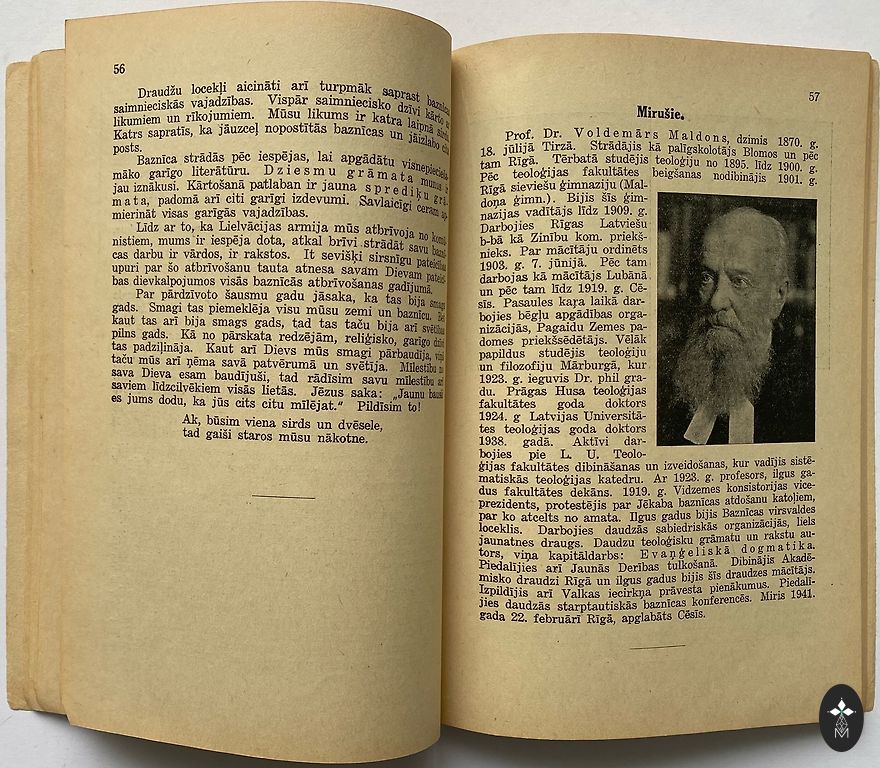 56
Draudžu locekļi aicināti arī turpmāk saprast baznīcas
saimnieciskās vajadzības. Vispār saimniecisko dzīvi kārto ar
likumiem un rīkojumiem. Mūsu likums ir katra laipnā sirds.
Katrs sapratīs, ka jāuzceļ nopostītās baznīcas un jāizlabo citas
posts.
Baznīca strādās pēc iespējas, lai apgādātu visnepiecieša-
māko garīgo literātūru. Dziesmu grāmata mums ir
jau iznākusi. Kārtošanā patlaban ir jauna sprediķu grā-
mata, padomā arī citi garīgi izdevumi. Savlaicīgi ceram ap-
mierināt visas garīgās vajadzības.
Līdz ar to, ka Lielvācijas armija mūs atbrīvoja no komū-
nistiem, mums ir iespēja dota, atkal brīvi strādāt savu baznī-
cas darbu ir vārdos, ir rakstos. It sevišķi sirsnīgu pateicības
upuri par šo atbrīvošanu tauta atnesa savam Dievam pateicī-
bas dievkalpojumos visās baznīcās atbrīvošanas gadījumā.
Par pārdzīvoto šausmu gadu jāsaka, ka tas bija smags
gads. Smagi tas piemeklēja visu mūsu zemi un baznīcu. Bet
kaut tas arī bija smags gads, tad tas taču bija arī svētības
pilns gads. Kā no pārskata redzējām, reliģisko, garīgo dzīvi
tas padziļināja. Kaut arī Dievs mūs smagi pārbaudīja, viņš
taču mūs arī ņēma savā patvērumā un svētīja. Mīlestību no
sava Dieva esam baudījuši, tad rādīsim savu mīlestību arī
saviem līdzcilvēkiem visās lietās. Jēzus saka: „Jaunu bausli
es jums dodu, ka jūs cits citu mīlējat.“ Pildīsim to!
Ak, būsim viena sirds un dvēsele,
tad gaiši staros mūsu nākotne.
57
Mirušie.
Prof. Dr. Voldemārs Maldons, dzimis 1870. g.
18. jūlijā Tirzā. Strādājis kā palīgskolotājs Blomos un pēc
tam Rīgā. Tērbatā studējis teoloģiju no 1895. līdz 1900. g.
Pēc teoloģijas fakultātes beigšanas nodibinājis 1901. g.
Rīgā sieviešu ģimnaziju (Mal-
doņa ģimn.). Bijis šīs ģim-
nazijas vadītājs līdz 1909. g.
Darbojies Rīgas Latviešu
b-bā kā Zinību kom. priekš-
nieks. Par mācītāju ordinēts
1903. g. 7. jūnijā. Pēc tam
darbojas kā mācītājs Lubānā
un pēc tam līdz 1919. g. Cē-
sīs. Pasaules kaŗa laikā dar-
bojies bēgļu apgādības orga-
nizācijās, Pagaidu Zemes pa-
domes priekšsēdētājs. Vēlāk
papildus studējis teoloģiju
un filozofiju Mārburgā, kur
1923. g. ieguvis Dr. phil gra-
du. Prāgas Husa teoloģijas
fakultātes goda doktors
1924. g Latvijas Universitā-
tes teoloģijas goda doktors
1938. gadā. Aktīvi dar-
bojies pie L. U. Teolo-
ģijas fakultātes dibināšanas un izveidošanas, kur vadījis sistē-
mātiskās teoloģijas katedru. Ar 1923. g. profesors, ilgus ga-
dus fakultātes dekāns. 1919. g. Vidzemes konsistorijas vice-
prezidents, protestējis par Jēkaba baznīcas atdošanu katoļiem,
par ko atcelts no amata. Ilgus gadus bijis Baznīcas virsvaldes
loceklis. Darbojies daudzās sabiedriskās organizācijās, liels
jaunatnes draugs. Daudzu teoloģisku grāmatu un rakstu au-
tors, viņa kapitāldarbs: Evaņģeliskā dogmatika.
Piedalījies arī Jaunās Derības tulkošanā. Dibinājis Akadē-
misko draudzi Rīgā un ilgus gadus bijis šīs draudzes mācītājs.
Izpildījis arī Valkas iecirkņa prāvesta pienākumus. Piedalī-
jies daudzās starptautiskās baznīcas konferencēs. Miris 1941.
gada 22. februārī Rīgā, apglabāts Cēsīs.